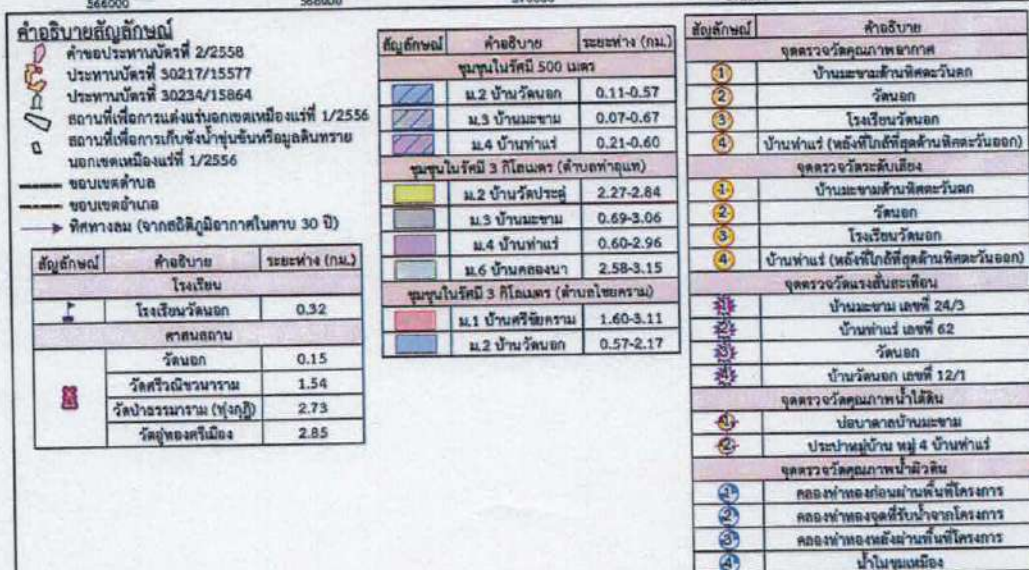 566000 568000
คำอธิบายสัญลักษณ์
คำขอประทานบัตรที่ 2/2558
ประทานบัตรที่ 30217/15577
ประทานบัตรที่ 30234/15864
สถานที่เพื่อการแต่งแร่นอกเขตเหมืองแร่ที่ 1/2556
สถานที่เพื่อการเก็บขังน้ำขุ่นข้นหรือมูลดินทราย
นอกเขตเหมืองแร่ที่ 1/2556
ขอบเขตตำบล
ขอบเขตอำเภอ
ทิศทางลม (จากสถิติภูมิอากาศในคาบ 30 ปี)
สัญลักษณ์ คำอธิบาย ระยะห่าง (กม.)
โรงเรียน
โรงเรียนวัดนอก 0.32
ศาสนสถาน
วัดนอก 0.15
วัดศรีวณิชวนาราม 1.54
วัดป่าธรรมาราม (ทุ่งกุฎี) 2.73
วัดอู่ทองศรีเมือง 2.85
สัญลักษณ์ คำอธิบาย ระยะห่าง (กม.)
ชุมชนในรัศมี 500 เมตร
ม.2 บ้านวัดนอก 0.11-0.57
ม.3 บ้านมะขาม 0.07-0.67
ม.4 บ้านท่าแร่ 0.21-0.60
ชุมชนในรัศมี 3 กิโลเมตร (ตำบลท่าอุแท)
ม.2 บ้านวัดประดู่ 2.27-2.84
ม.3 บ้านมะขาม 0.69-3.06
ม.4 บ้านท่าแร่ 0.60-2.96
ม.6 บ้านคลองนา 2.58-3.15
ชุมชนในรัศมี 3 กิโลเมตร (ตำบลไชยคราม)
ม.1 บ้านศรีชัยคราม 1.60-3.11
ม.2 บ้านวัดนอก 0.57-2.17
สัญลักษณ์ คำอธิบาย
จุดตรวจวัดคุณภาพอากาศ
1 บ้านมะขามด้านทิศตะวันตก
2 วัดนอก
3 โรงเรียนวัดนอก
4 บ้านท่าแร่ (หลังที่ใกล้ที่สุดด้านทิศตะวันออก)
จุดตรวจวัดระดับเสียง
1 บ้านมะขามด้านทิศตะวันตก
2 วัดนอก
3 โรงเรียนวัดนอก
4 บ้านท่าแร่ (หลังที่ใกล้ที่สุดด้านทิศตะวันออก)
จุดตรวจวัดแรงสั่นสะเทือน
1 บ้านมะขาม เลขที่ 24/3
2 บ้านท่าแร่ เลขที่ 62
3 วัดนอก
4 บ้านวัดนอก เลขที่ 12/1
จุดตรวจวัดคุณภาพน้ำใต้ดิน
1 บ่อบาดาลบ้านมะขาม
2 ประปาหมู่บ้าน หมู่ 4 บ้านท่าแร่
จุดตรวจวัดคุณภาพน้ำผิวดิน
1 คลองท่าทองก่อนผ่านพื้นที่โครงการ
2 คลองท่าทองจุดที่รับน้ำจากโครงการ
3 คลองท่าทองหลังผ่านพื้นที่โครงการ
4 น้ำในขุมเหมือง